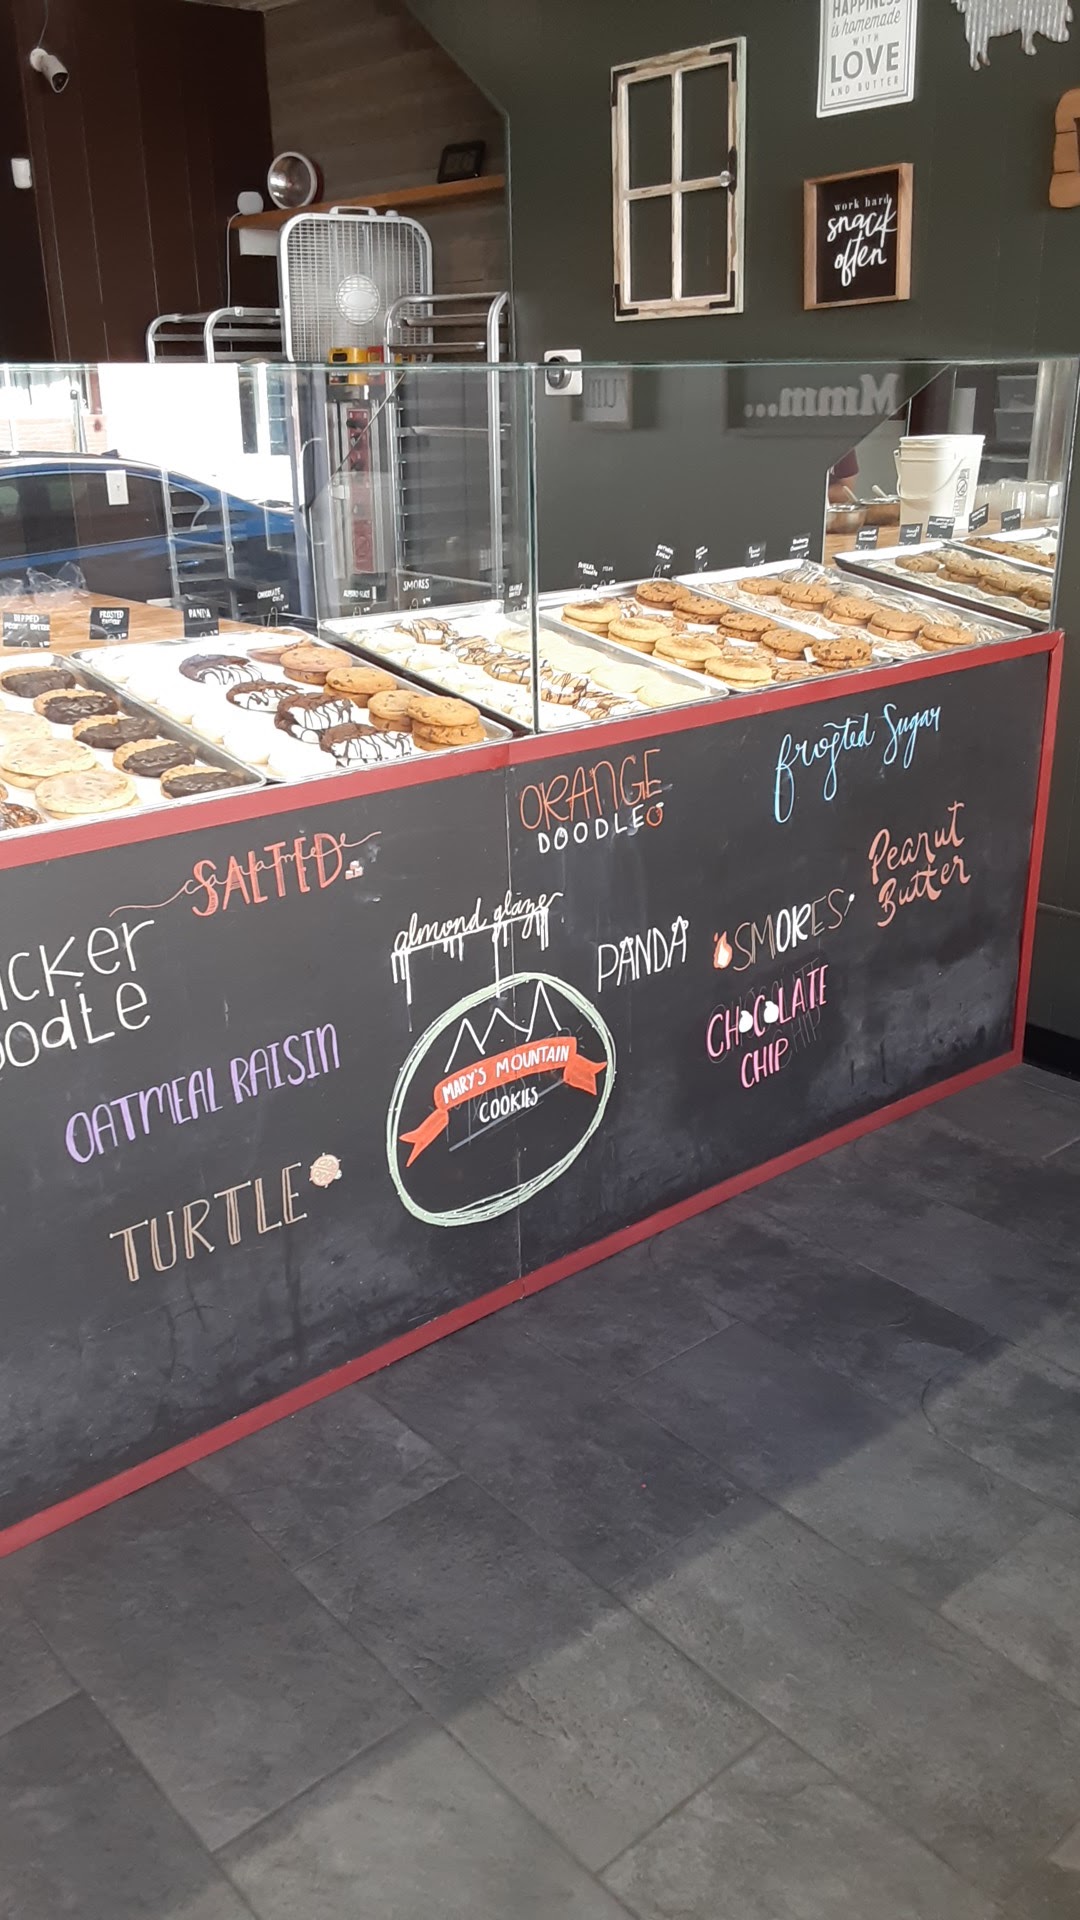 HAPPINESS
is homemade
WITH
LOVE
AND BUTTER
work hard
snack
often
Mmm...
DIPPED
FROSTED
PANDA
CHOCOLATE
CHIP
ALMOND GLAZE
SMORES
frosted Sugar
ORANGE
DOODLE
caramel
SALTED
Peanut
Butter
almond glaze
ICKER
OODLE
PANDA
SMORES
CHOCOLATE
CHIP
OATMEAL RAISIN
MARY'S MOUNTAIN
COOKIES
TURTLE